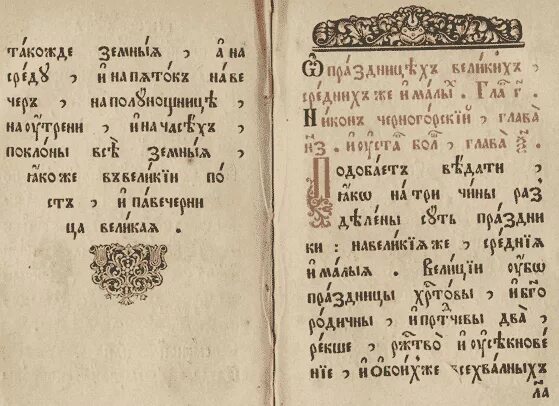 та́кожде земны́ѧ , а҆ на
сре́дꙋ , и҆ на пѧто́къ на ве
черъ , на полꙋ́нощницѣ
на ᲂу҆́трени , и҆ на часѣ́хъ ,
покло́ны всѣ̀ земны́ѧ ,
ꙗ҆́коже въ вели́кїи по́
стъ , и҆ павечерни
ца вели́каѧ .
Ѡ҆ пра́здницѣхъ вели́кихъ ,
сре́днихъ же и҆ ма́лыⷯ . Гла̑ г҃ .
Ни́конъ черного́рскїй , глава̀
н҃з . и҆ ᲂу҆ста́ⷡ бо́лⷲ , глава̀
Подоба́етъ вѣ́дати ,
ꙗ҆́кѡ на трѝ чи́ны раз
дѣле́ны сꙋ́ть пра́здни
ки : на вели́кїѧ же , сре́днїѧ
и҆ ма́лыѧ . Вели́цїи ᲂу҆́бѡ
пра́здницы хрⷭ҇то́вы , и҆ бг҃о
ро́дичны , и҆ прⷣте́чевы два̀ ,
ре́кше , ржⷭ҇тво̀ и҆ ᲂу҆сѣкнове́
нїе , и҆ ѻ҆бои́хже всехва́лныхъ
а҆пⷭ҇лъ